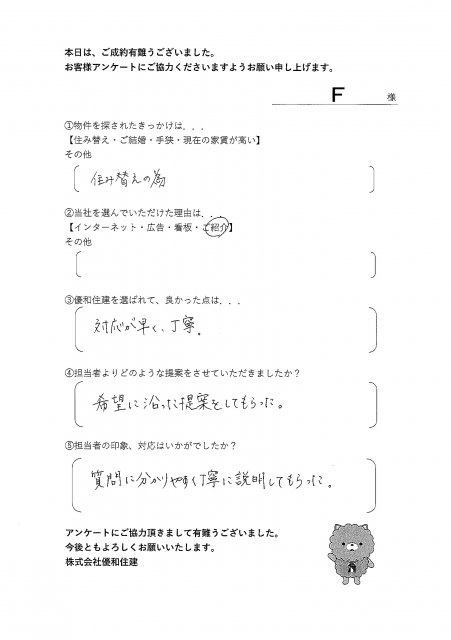 本日は、ご成約有難うございました。
お客様アンケートにご協力くださいますようお願い申し上げます。
F 様
①物件を探されたきっかけは．．．
【住み替え・ご結婚・手狭・現在の家賃が高い】
その他
住み替えの為
②当社を選んでいただけた理由は．．
【インターネット・広告・看板・ご紹介】
その他
③優和住建を選ばれて、良かった点は．．．
対応が早く、丁寧。
④担当者よりどのような提案をさせていただきましたか？
希望に沿った提案をしてもらった。
⑤担当者の印象、対応はいかがでしたか？
質問に分かりやすく丁寧に説明してもらった。
アンケートにご協力頂きまして有難うございました。
今後ともよろしくお願いいたします。
株式会社優和住建